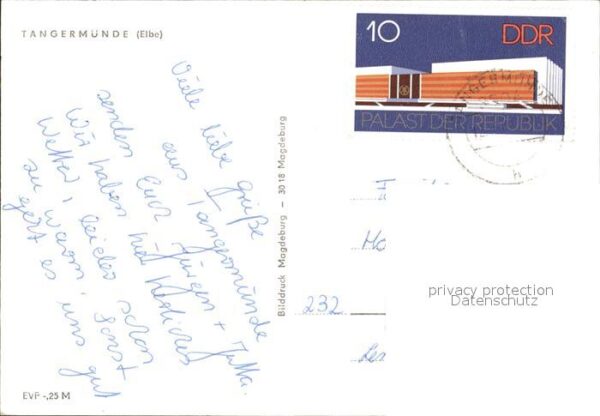 TANGERMÜNDE (Elbe)
Viele liebe Grüße
aus Tangermünde
senden Euch Jürgen + Jutta.
Wir haben hier herrliches
Wetter, leider schon
zu warm. Sonst
geht es uns gut
EVP -,25 M
Bilddruck Magdeburg — 30 18 Magdeburg
10
DDR
PALAST DER REPUBLIK
TANGERMÜNDE
h
232
privacy protection
Datenschutz